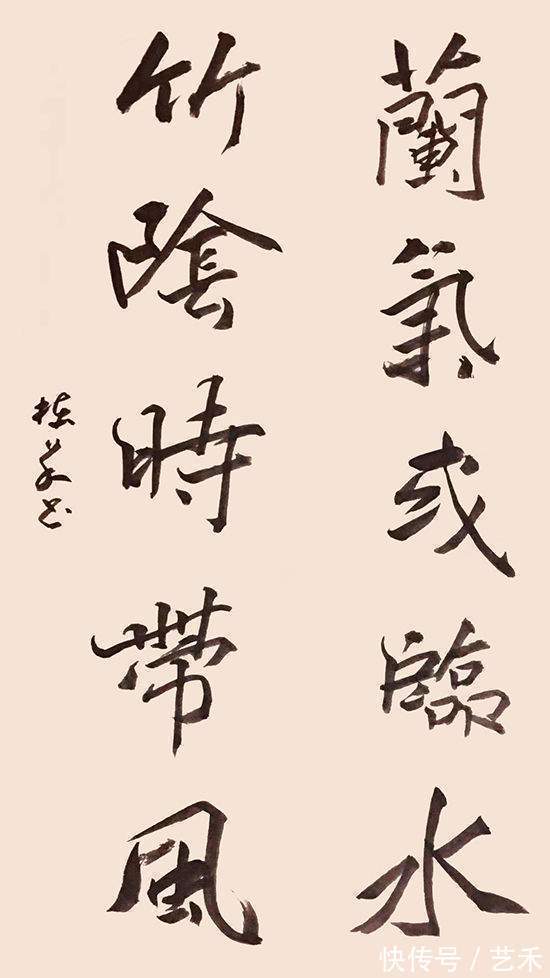 蘭氣或臨水
竹陰時帶風
快传号/艺禾